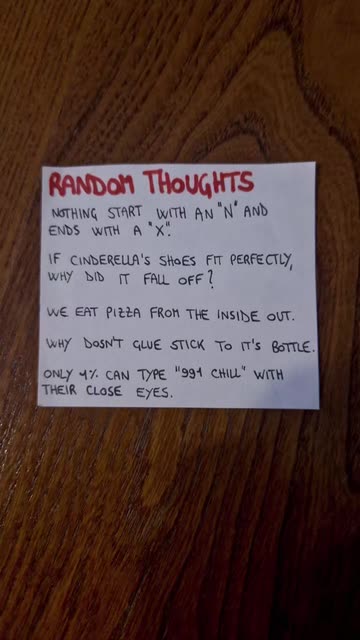 RANDOM THOUGHTS
NOTHING START WITH AN "N" AND
ENDS WITH A "X".
IF CINDERELLA'S SHOES FIT PERFECTLY,
WHY DID IT FALL OFF?
WE EAT PIZZA FROM THE INSIDE OUT.
WHY DOSN'T GLUE STICK TO IT'S BOTTLE.
ONLY 1% CAN TYPE "991 CHILL" WITH
THEIR CLOSE EYES.